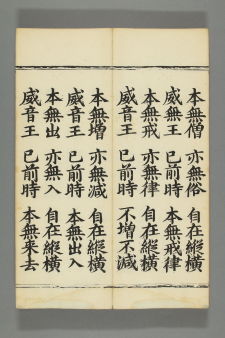 本無僧 亦無俗 自在縱橫
威無王 已前時 本無戒律
本無戒 亦無律 自在縱橫
威音王 已前時 不增不減
本無增 亦無減 自在縱橫
威音王 已前時 本無出入
本無出 亦無入 自在縱橫
威音王 已前時 本無来去